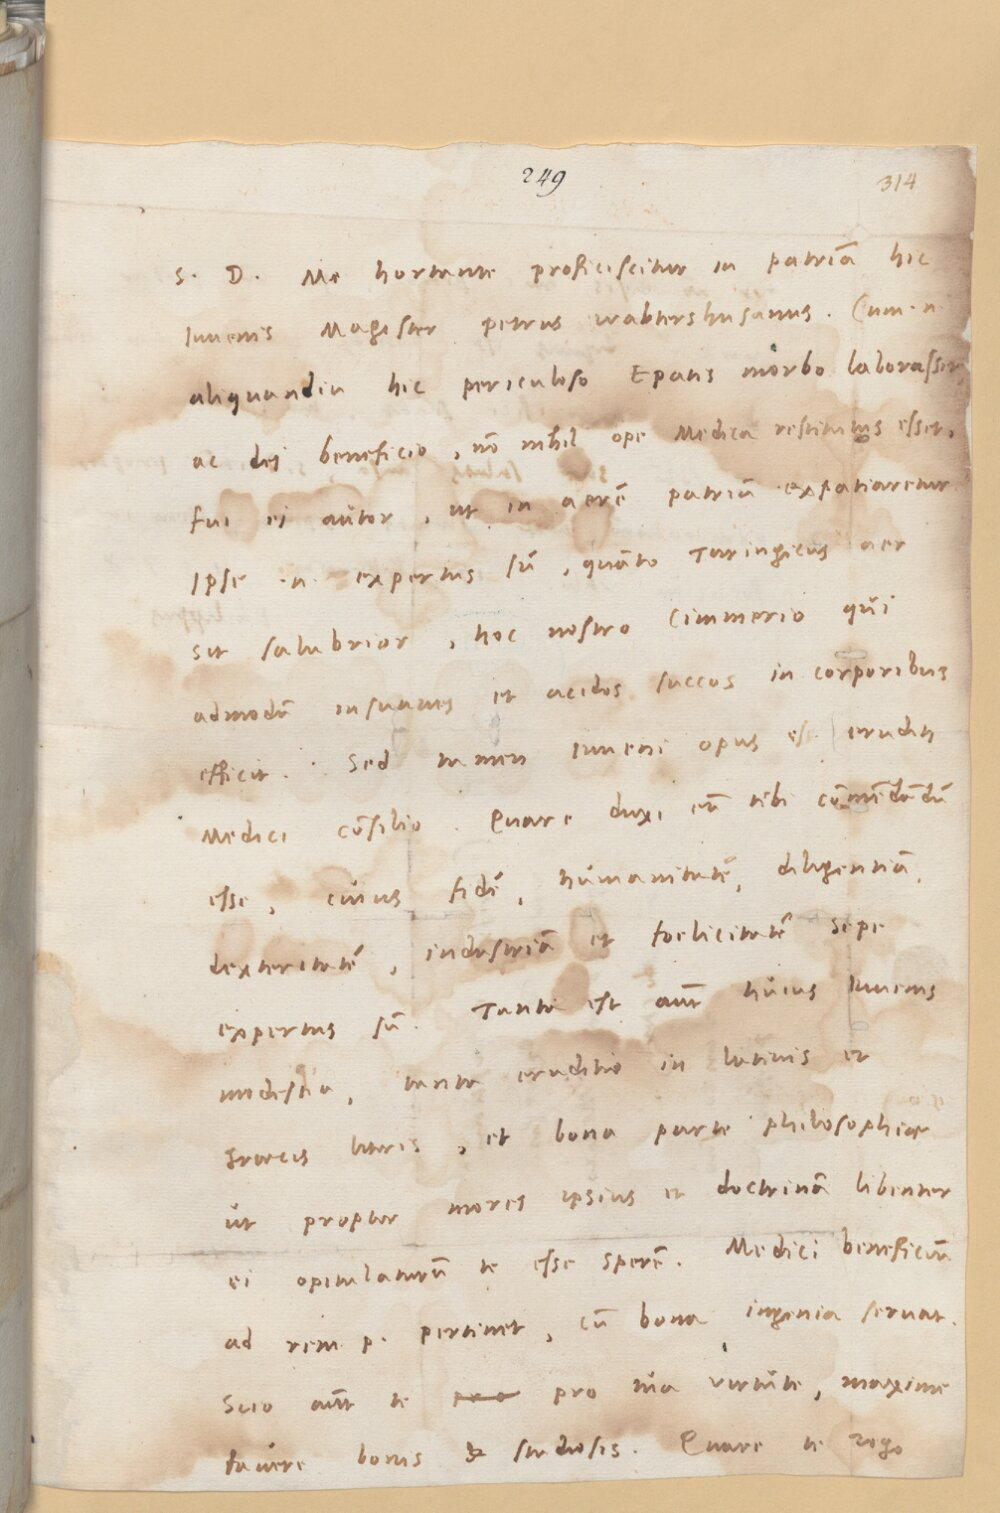 249
314
S. D. Me hortante proficiscitur in patriā hic
Iuuenis Magister petrus waltershusanus. Cum .n.
aliquandiu hic periculoso Epatis morbo laborasset,
ac dei beneficio, nō nihil ope Medica restitutus esset,
fui ei autor, ut in aerē patriū expatiaretur
Ipse .n. expertus sū, quāto Turingicus aer
sit salubrior, hoc nostro Cimmerio qui
admodū insuaues et acidos succos in corporibus
efficit. Sed tamen Iuueni opus est eruditi
Medici cōsilio. Quare duxi eū tibi cōmēdādū
esse, cuius fidē, humanitatē, diligentiā,
dexteritatē, industriā et foelicitatē sepe
expertus sū. Tanta est aūt huius Iuuenis
modestia, tanta eruditio in latinis et
graecis literis, et bona parte philosophiae
ut propter mores ipsius et doctrinā libenter
ei opitulaturū te esse sperē. Medici beneficiū
ad rem p. pertinet, cū bona ingenia seruat.
Scio aūt te pro pro tua virtute, maxime
fauere bonis & studiosis. Quare te rogo